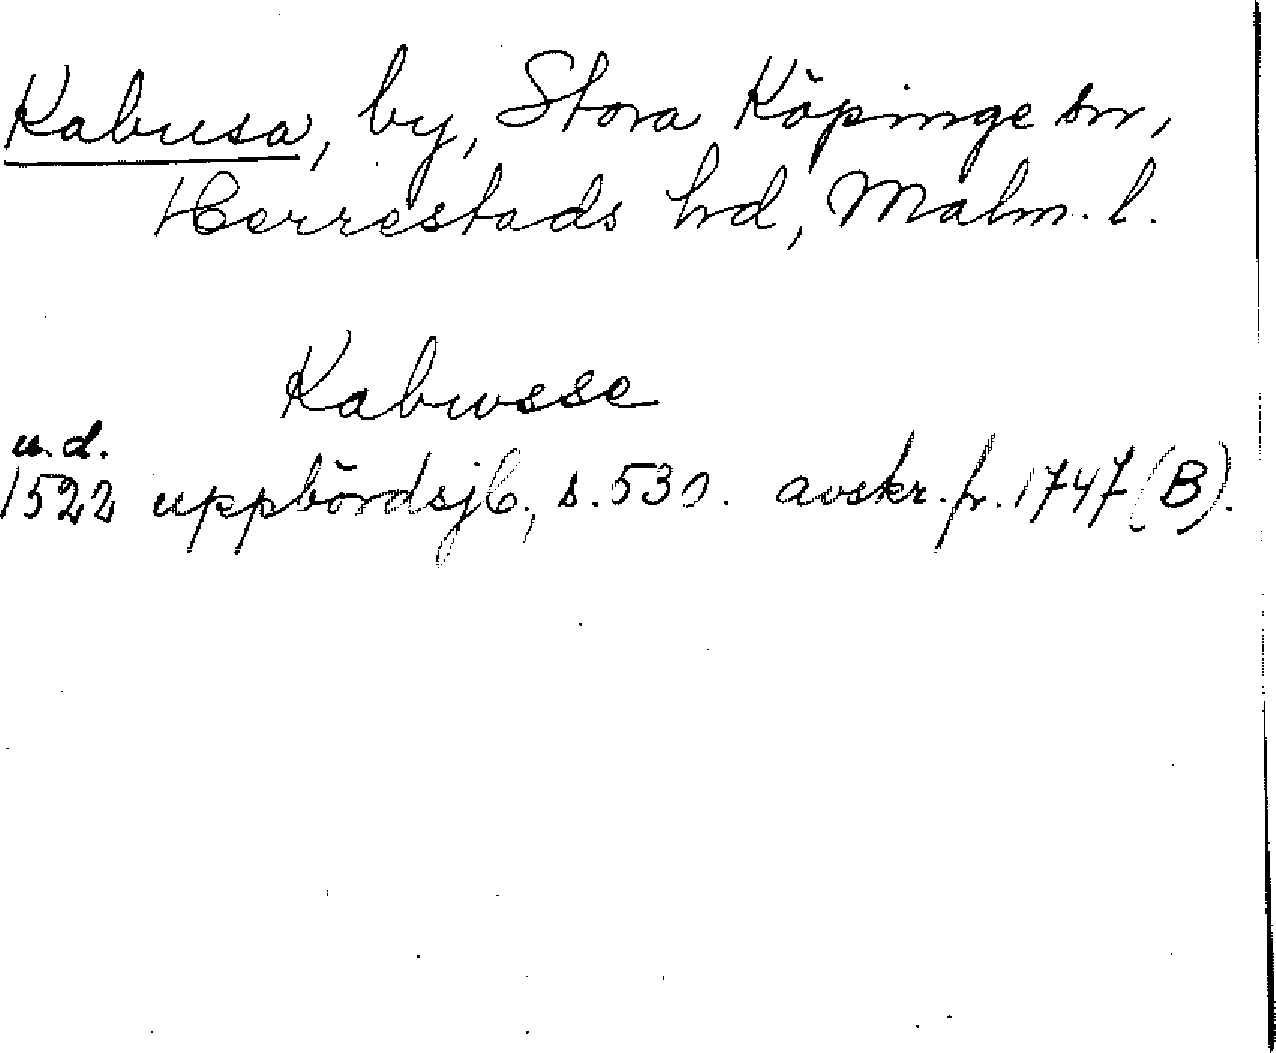 Kabusa, by, Stora Köpinge sn,
Herrestads hd, Malm. l.
Kabwsse
u.d.
1522 uppbördsjb., s. 530. avskr. fr. 1747 (B).